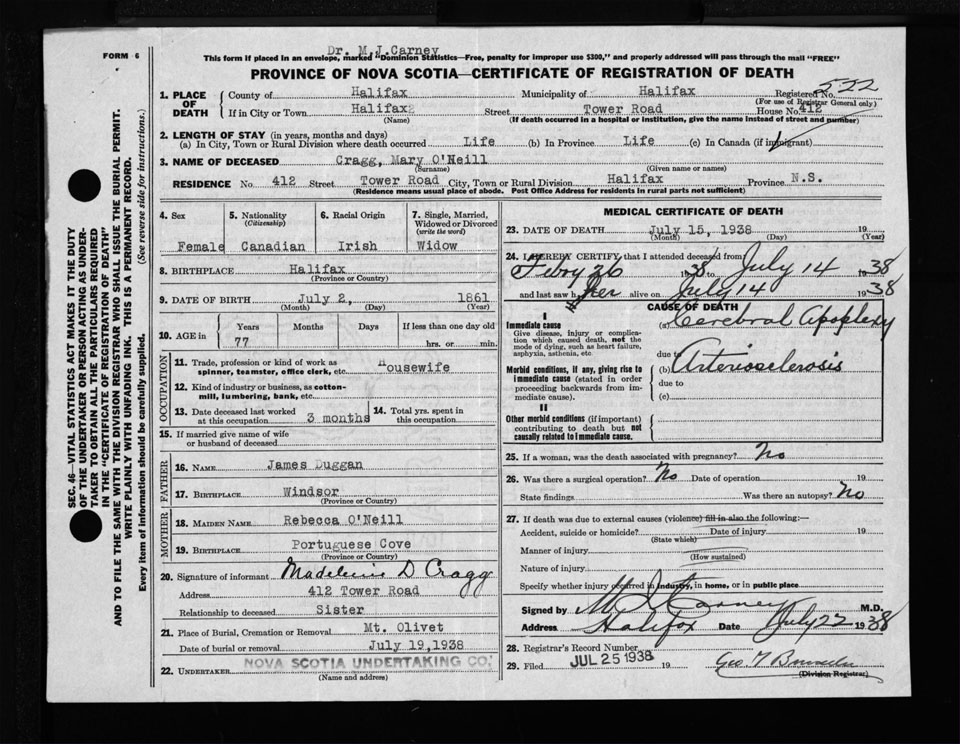 FORM 6
Dr. M.J.Carney
This form if placed in an envelope, marked "Dominion Statistics—Free, penalty for improper use $300," and properly addressed will pass through the mail "FREE"
PROVINCE OF NOVA SCOTIA—CERTIFICATE OF REGISTRATION OF DEATH
SEC. 46—VITAL STATISTICS ACT MAKES IT THE DUTY
OF THE UNDERTAKER OR PERSON ACTING AS UNDER-
TAKER TO OBTAIN ALL THE PARTICULARS REQUIRED
IN THE "CERTIFICATE OF REGISTRATION OF DEATH"
AND TO FILE THE SAME WITH THE DIVISION REGISTRAR WHO SHALL ISSUE THE BURIAL PERMIT.
WRITE PLAINLY WITH UNFADING INK. THIS IS A PERMANENT RECORD.
Every item of information should be carefully supplied. (See reverse side for instructions.)
1. PLACE OF DEATH
County of Halifax Municipality of Halifax Registered No. 522
(For use of Registrar General only)
If in City or Town Halifax Street Tower Road House No. 412
(Name) (If death occurred in a hospital or institution, give the name instead of street and number)
2. LENGTH OF STAY (in years, months and days)
(a) In City, Town or Rural Division where death occurred Life (b) In Province Life (c) In Canada (if immigrant)
3. NAME OF DECEASED Cragg, Mary O'Neill
(Surname) (Given name or names)
RESIDENCE No. 412 Street Tower Road City, Town or Rural Division Halifax Province N.S.
(Residence means usual place of abode. Post Office Address for residents in rural parts not sufficient)
4. Sex
Female
5. Nationality
(Citizenship)
Canadian
6. Racial Origin
Irish
7. Single, Married,
Widowed or Divorced
(write the word)
Widow
8. BIRTHPLACE Halifax
(Province or Country)
9. DATE OF BIRTH July 2, 1861
(Month) (Day) (Year)
10. AGE in
Years Months Days If less than one day old
77 hrs. or min.
OCCUPATION
11. Trade, profession or kind of work as
spinner, teamster, office clerk, etc. Housewife
12. Kind of industry or business, as cotton-
mill, lumbering, bank, etc.
13. Date deceased last worked
at this occupation 3 months
14. Total yrs. spent in
this occupation
15. If married give name of wife
or husband of deceased
FATHER
16. NAME James Duggan
17. BIRTHPLACE Windsor
(Province or Country)
MOTHER
18. MAIDEN NAME Rebecca O'Neill
19. BIRTHPLACE Portuguese Cove
(Province or Country)
20. Signature of informant Madeleine D Cragg
Address 412 Tower Road
Relationship to deceased Sister
21. Place of Burial, Cremation or Removal Mt. Olivet
Date of burial or removal July 19,1938
22. UNDERTAKER NOVA SCOTIA UNDERTAKING CO.
(Name and address)
MEDICAL CERTIFICATE OF DEATH
23. DATE OF DEATH July 15, 1938 19
(Month) (Day) (Year)
24. I HEREBY CERTIFY, that I attended deceased from
Febry 26 1938 to July 14 1938
and last saw her alive on July 14 1938
CAUSE OF DEATH
I
Immediate cause (a) Cerebral Apoplexy
Give disease, injury or complica-
tion which caused death, not the
mode of dying, such as heart failure,
asphyxia, asthenia, etc.
due to
Morbid conditions, if any, giving rise to
immediate cause (stated in order
proceeding backwards from im-
mediate cause).
(b) Arteriosclerosis
due to
(c)
II
Other morbid conditions (if important)
contributing to death but not
causally related to immediate cause.
25. If a woman, was the death associated with pregnancy? No
26. Was there a surgical operation? No Date of operation 19
State findings Was there an autopsy? No
27. If death was due to external causes (violence) fill in also the following:—
Accident, suicide or homicide? Date of injury 19
(State which)
Manner of injury
(How sustained)
Nature of injury
Specify whether injury occurred in industry, in home, or in public place
Signed by M J Carney M.D.
Address Halifax Date July 22 1938
28. Registrar's Record Number
29. Filed JUL 25 1938 19
(Division Registrar)